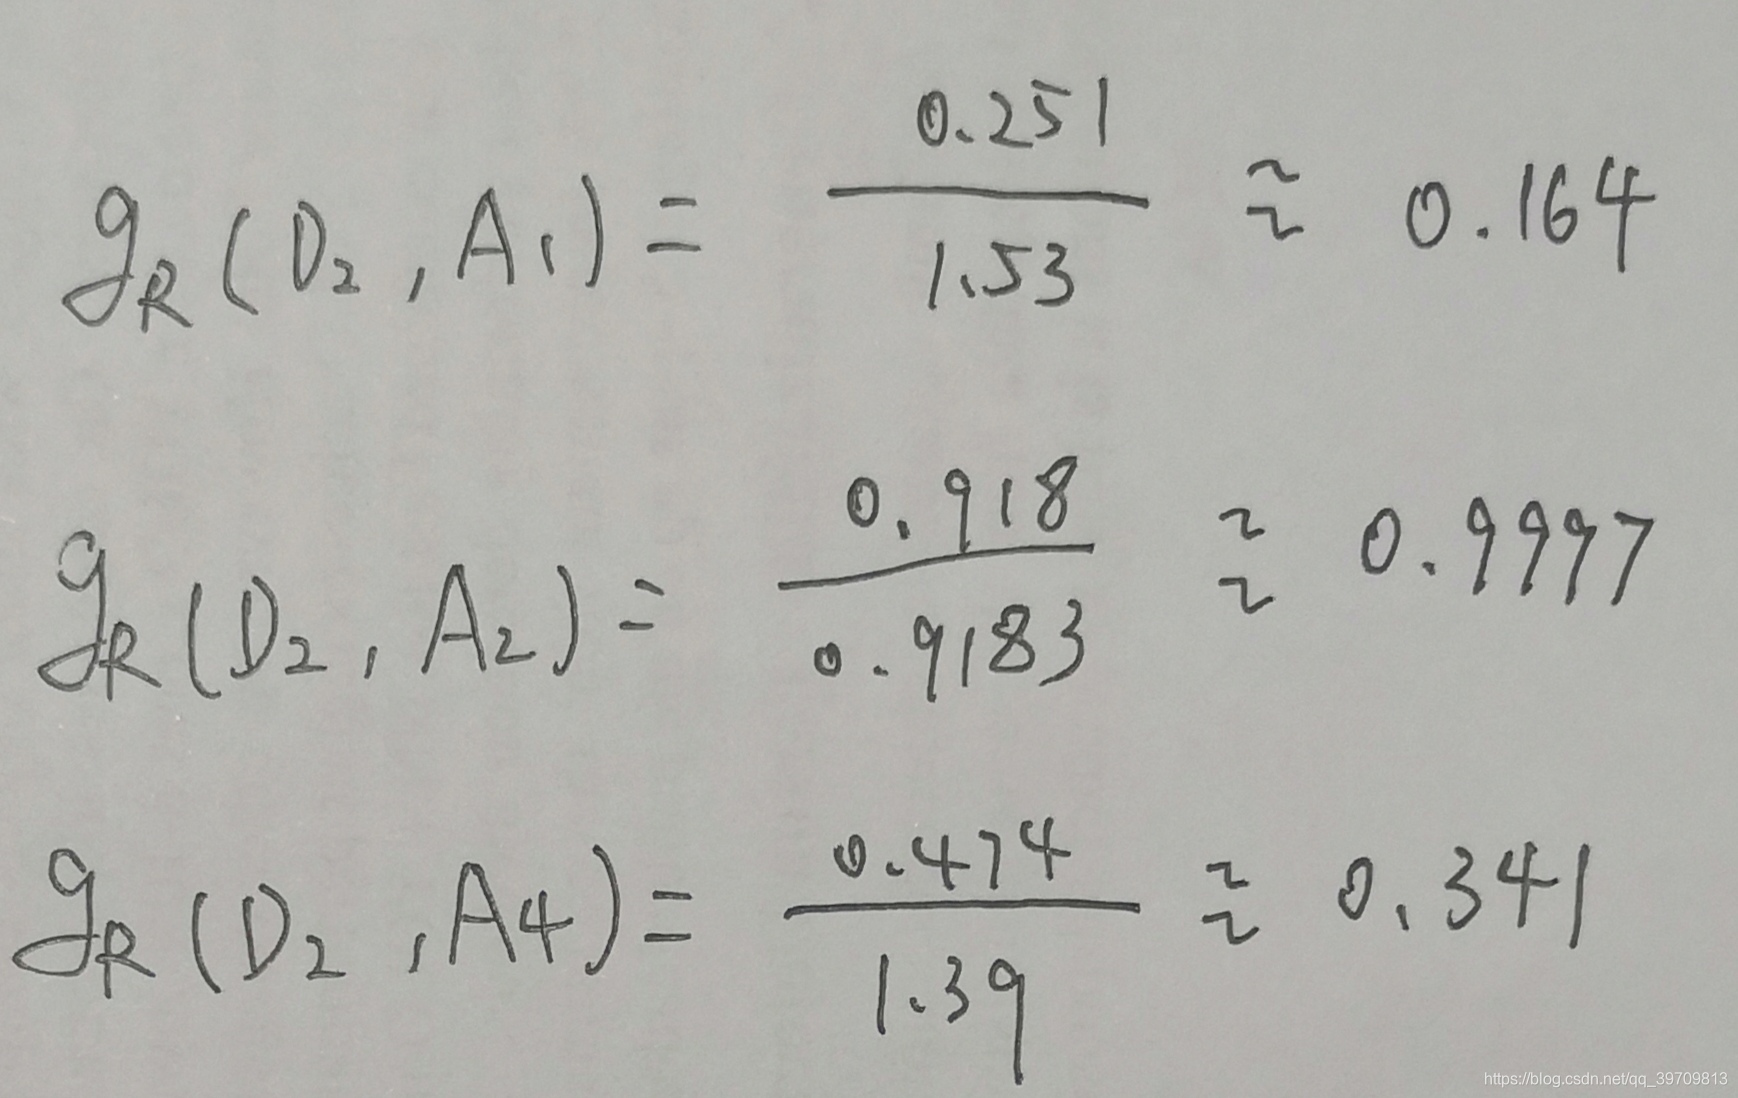 g_R(D_2, A_1) = \frac{0.251}{1.53} ≈ 0.164
g_R(D_2, A_2) = \frac{0.918}{0.9183} ≈ 0.9997
g_R(D_2, A_4) = \frac{0.474}{1.39} ≈ 0.341
https://blog.csdn.net/qq_39709813